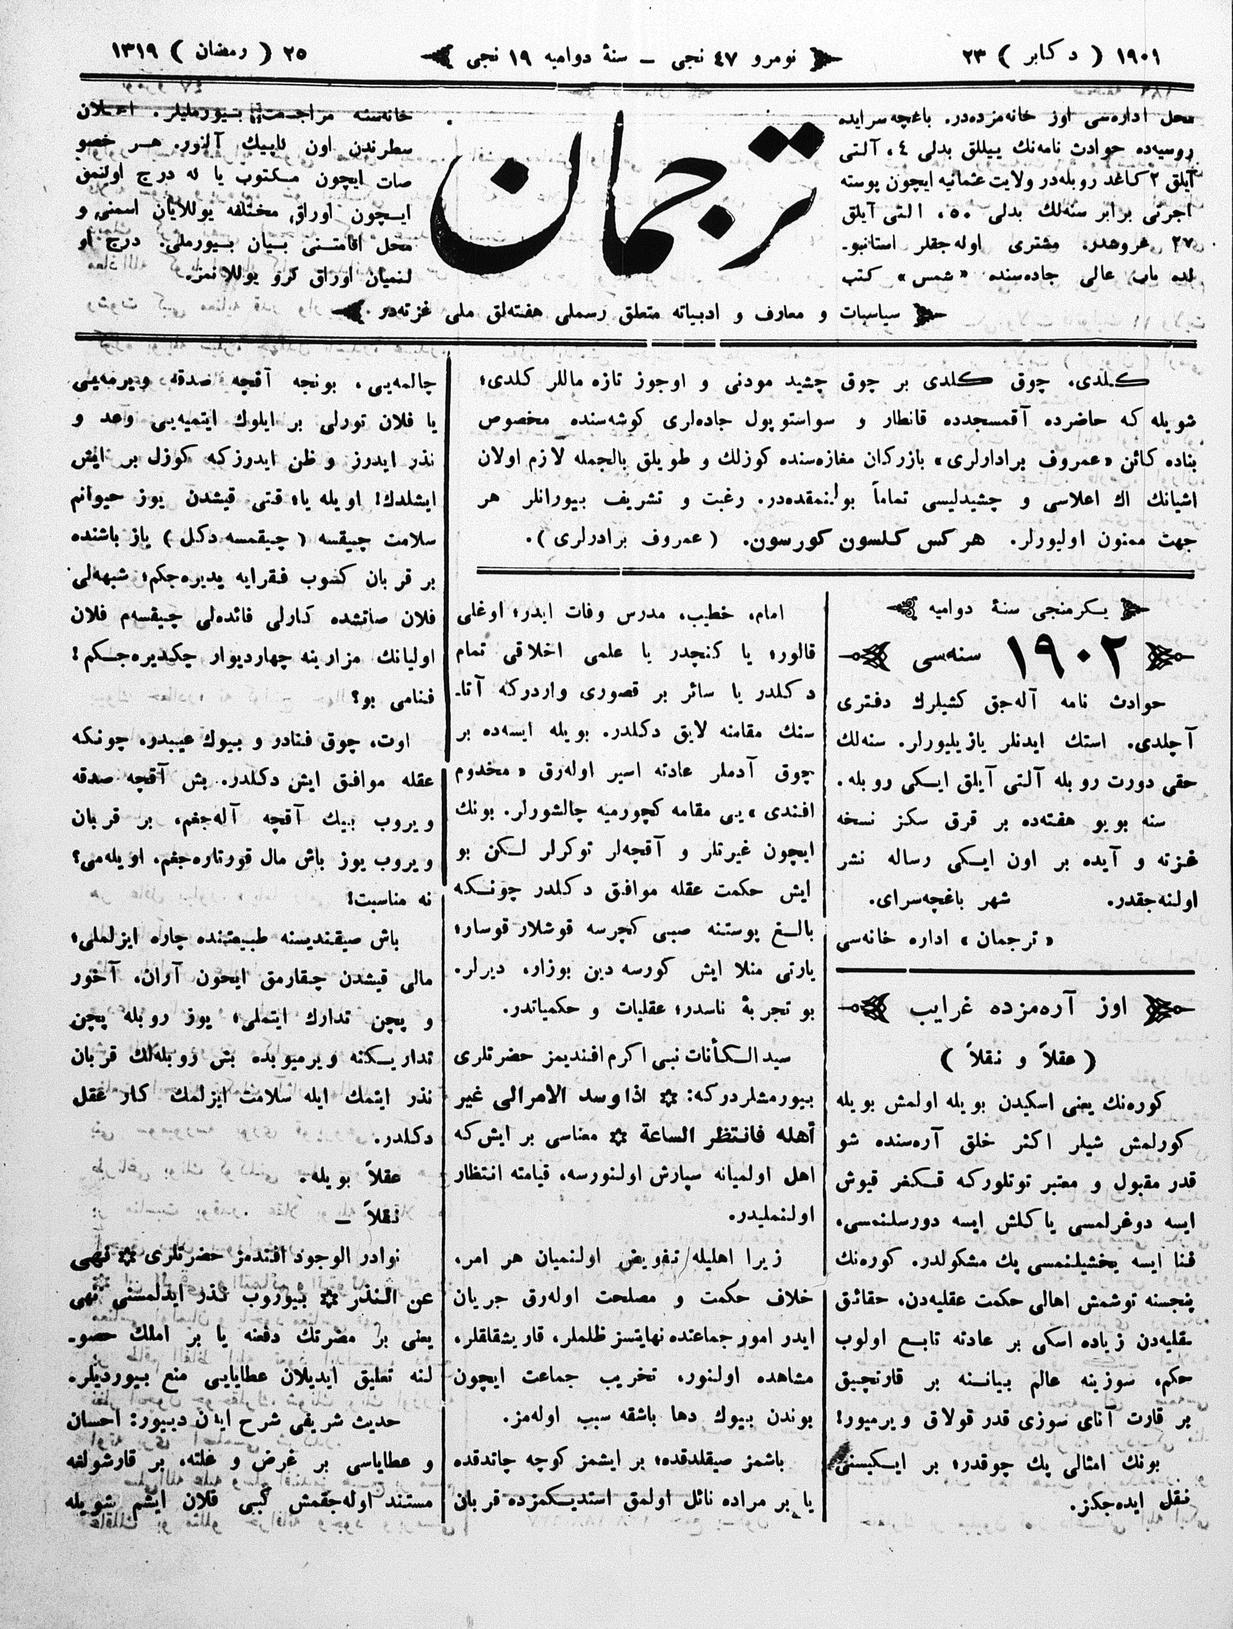 ۱۹۰۱ ( دكابر ) ۲۳
نومرو ۴۷ نجی ــ سنۀ دوامیه ۱۹ نجی
۲۵ ( رمضان ) ۱۳۱۹
محل اداره‌سی اوز خانه‌مزده‌در. باغچه سرایده
روسیه‌ده حوادث نامه‌نك ییللق بدلی ۴، آلتی
آیلق ۲ كاغد روبله‌در ولایت عثمانیه ایچون پوسته
اجرتی برابر سنه‌لك بدلی ۵۰، التی آیلق
۲۷ غروشدر. مشتری اوله‌جقلر استانبو-
لده باب عالی جاده‌سنده «شمس» كتب
ترجمان
خانه‌سنه مراجعت بیورملیلر. اعلان
سطرندن اون كاپیك آلنور. هر خصو
صات ایچون مكتوب یا له درج اولنمق
ایچون اوراق مختلفه یوللایان اسمنی و
محل اقامتنی بیان بیورملی. درج او
لنمیان اوراق كرو یوللانمز.
سیاسیات و معارف و ادبیاته متعلق رسملی هفته‌لق ملی غزته‌در.
كلدی، چوق كلدی بر چوق چشید مودنی و اوجوز تازه ماللر كلدی؛
شویله كه حاضرده آقمسجدده قانطار و سواستوپول جاده‌لری كوشه‌سنده مخصوص
بناده كائن «عمروف برادارلری» بازركان مغازه‌سنده كوزلك و طویلق بالجمله لازم اولان
اشیانك اك اعلاسی و چشیدلیسی تماماً بولنمقده‌در. رغبت و تشریف بیورانلر هر
جهت ممنون اولیورلر. هركس كلسون كورسون. (عمروف برادرلری).
یكرمنجی سنۀ دوامیه
۱۹۰۲ سنه‌سی
حوادث نامه آله‌جق كشیلرك دفتری
آچلدی. استك ایدنلر یازیلیورلر. سنه‌لك
حقی دورت روبله آلتی آیلق ایكی روبله.
سنه بویو هفته‌ده بر قرق سكز نسخه
غزته و آیده بر اون ایكی رساله نشر
اولنه‌جقدر. شهر باغچه‌سرای.
«ترجمان» اداره خانه‌سی
اوز آره‌مزده غرایب
(عقلاً و نقلاً)
كوره‌نك یعنی اسكیدن بویله اولمش بویله
كورلمش شیلر اكثر خلق آره‌سنده شو
قدر مقبول و معتبر توتلوركه قنكغر قیوش
ایسه دوغرلمسی یاكلش ایسه دورسلنمسی،
فنا ایسه یخشیلنمسی پك مشكولدر. كوره‌نك
پنجسنه توشمش اهالی حكمت عقلیه‌دن، حقائق
نقلیه‌دن زیاده اسكی بر عادته تابع اولوب
حكم، سوزینه عالم بیاننه بر قارتچیق
بر قارت آنای سوزی قدر قولاق ویرمیور!
بونك امثالی پك چوقدر؛ بر ایكیسنی
نقل ایده‌جكز.
امام، خطیب، مدرس وفات ایدر؛ اوغلی
قالور؛ یا كنچدر یا علمی اخلاقی تمام
دكلدر یا سائر بر قصوری واردركه آتا-
سنك مقامنه لایق دكلدر. بویله ایسه‌ده بر
چوق آدملر عادته اسیر اوله‌رق «مخدوم
افندی» یی مقامه كچورمیه چالشورلر. بونك
ایچون غیرتلر و آقچه‌لر توكرلر لكن بو
ایش حكمت عقله موافق دكلدر چونكه
بالغ پوستنه صبی كچرسه قوشلار قوسار؛
یارتی منلا ایش كورسه دین بوزار، دیرلر.
بو تجربۀ ناسدر؛ عقلیات و حكمیاتدر.
سید الكأنات نبی اكرم افندیمز حضرتلری
بیورمشلردركه: اذا وسد الامر الی غیر
أهله فانتظر الساعة معناسی بر ایش كه
اهل اولمیانه سپارش اولنورسه، قیامته انتظار
اولنملیدر.
زیرا اهلیله تفویض اولنمیان هر امر،
خلاف حكمت و مصلحت اوله‌رق جریان
ایدر امور جماعتده نهایتسز ظلملر، قاریشقلقلر،
مشاهده اولنور، تخریب جماعت ایچون
بوندن بیوك دها باشقه سبب اوله‌مز.
باشمز صیقلدقده؛ بر ایشمز كوچه چاتدقده
یا بر مراده نائل اولمق استدیكمزده قربان
چالمه‌یی، بونجه آقچه صدقه ویرمه‌یی
یا فلان تورلی بر ایلوك ایتمیه‌یی وعد و
نذر ایدرز و ظن ایدرزكه كوزل بر ایش
ایشلدك! اویله یا؛ قتی قیشدن یوز حیوانم
سلامت چیقسه (چیقمسه دكل) یاز باشنده
بر قربان كسوب فقرایه یدیره‌جكم؛ شبهه‌لی
فلان صاتشده كارلی فائده‌لی چیقسه‌م فلان
اولیانك مزارینه چهاردیوار چكدیره‌جكم!
فنامی بو؟
اوت، چوق فنادر و بیوك عیبدر، چونكه
عقله موافق ایش دكلدر. بش آقچه صدقه
ویروب بیك آقچه آله‌جغم، بر قربان
ویروب یوز باش مال قورتاره‌جغم. اویله‌می؟
نه مناسبت!
باش صیقندیسنه طبیعتنده چاره ایزلملی؛
مالی قیشدن چقارمق ایچون آران، آخور
و پچن تدارك ایتملی؛ یوز روبله پچن
تداریكنه ویرمیوبده بش روبله‌لك قربان
نذر ایتمك ایله سلامت ایزلمك كار عقل
دكلدر.
عقلاً بویله.
نقلاً ــ
نوادر الوجود افندمز حضرتلری نهی
عن النذر بیوروب نذر ایدلمسنی نهی
یعنی بر مضرتك دفعنه یا بر املك حصو-
لنه تعلیق ایدیلان عطایایی منع بیوردیلر.
حدیث شریفی شرح ایدن دییور: احسان
و عطایاسی بر غرض و علته، بر قارشولغه
مستند اوله‌جقمش كبی فلان ایشم شویله